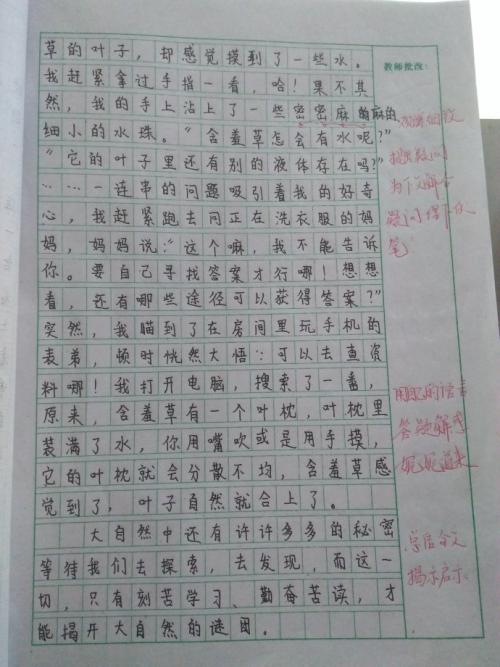 草的叶子，却感觉摸到了一些水。
教师批改：
我赶紧拿过手指一看，哈！果不其
然，我的手上沾上了一些密密麻麻的
细小的水珠。“含羞草怎会有水呢？”
“它的叶子里还有别的液体存在吗？”
……一连串的问题吸引着我的好奇
心，我赶紧跑去问正在洗衣服的妈
妈，妈妈说：“这个嘛，我不能告诉
你。要自己寻找答案才行哪！想想
看，还有哪些途径可以获得答案？”
突然，我瞄到了在房间里玩手机的
表弟，顿时恍然大悟：可以去查资
料哪！我打开电脑，搜索了一番，
原来，含羞草有一个叶枕，叶枕里
装满了水，你用嘴吹或是用手摸，
它的叶枕就会分散不均，含羞草感
觉到了，叶子自然就合上了。
大自然中还有许许多多的秘密
等待我们去探索，去发现，而这一
切，只有刻苦学习、勤奋苦读，才
能揭开大自然的谜团。
观察细致
提出疑问
为下文解答
疑问埋下伏
笔
的语言
答疑解惑
娓娓道来
总结全文
揭示启示